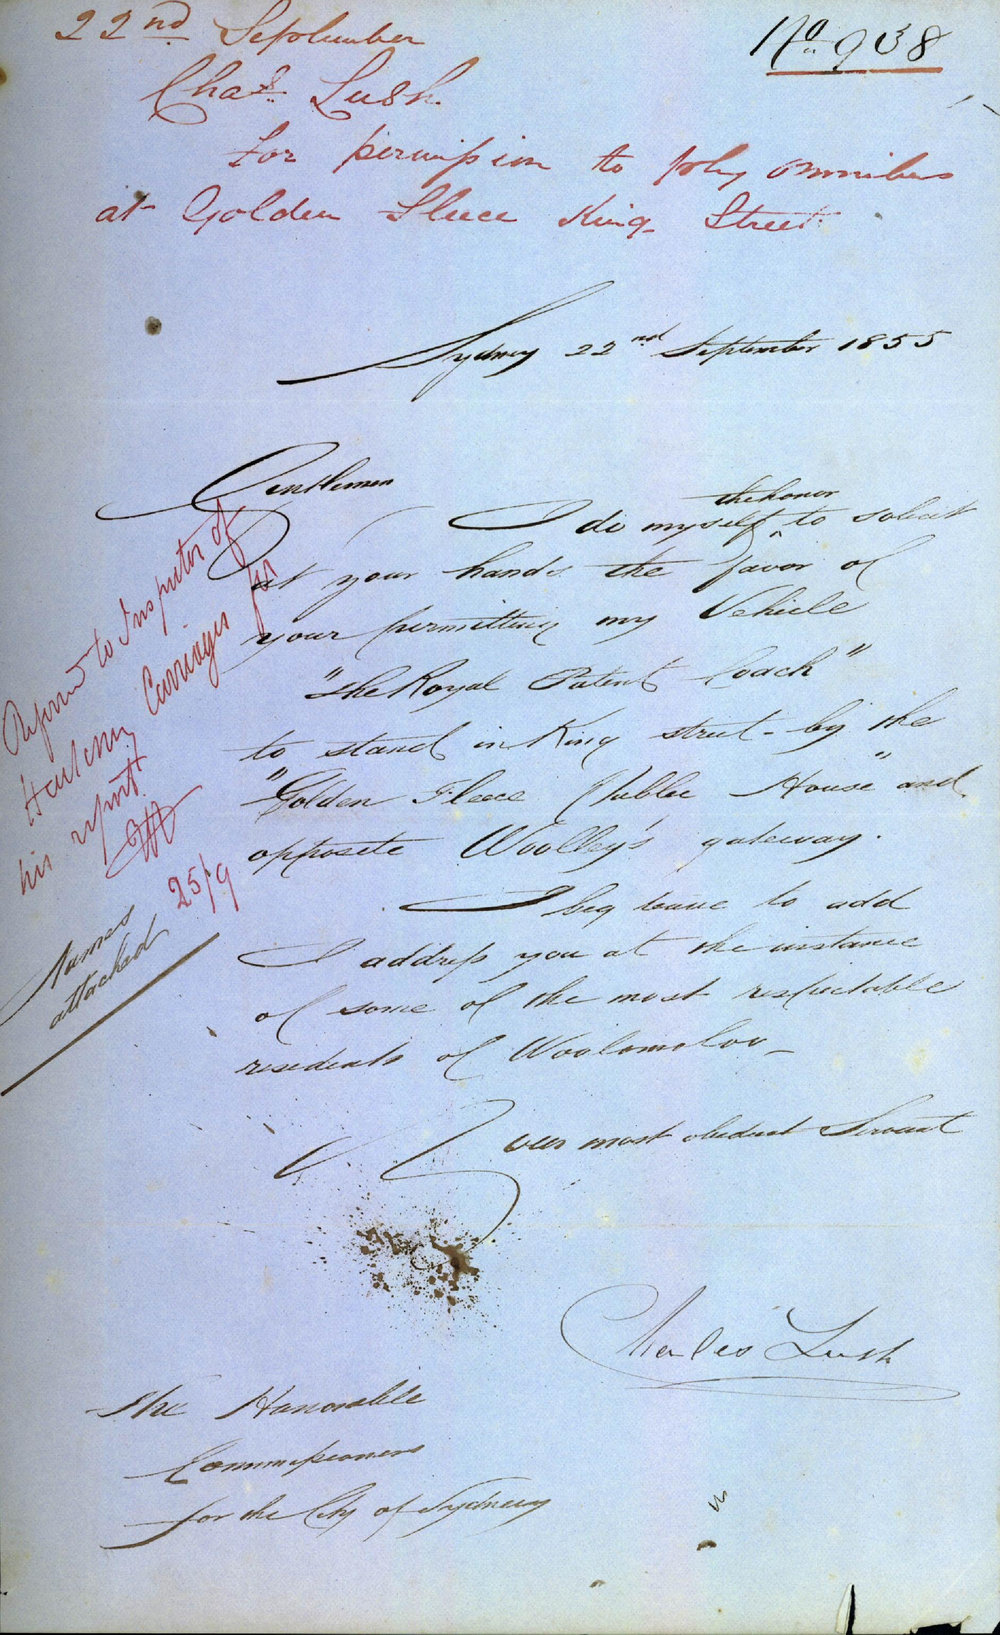 22nd September
No 938
Chas. Lush.
For permission to ply omnibus
at Golden Fleece King Street
Sydney 22nd September 1855
Gentlemen
the honor
I do myself ^ to solicit
at your hands the favor of
your permitting my Vehicle
"The Royal Patent Coach"
to stand in King street - by the
"Golden Fleece Public House" and
opposite Woolley's gateway.
I beg leave to add
I address you at the instance
of some of the most respectable
residents of Woolomoloo -
Your most obedient Servant
Charles Lush
The Honorable
Commissioners
for the City of Sydney
Referred to Inspector of
Hackney Carriages for
his report
25/9
Names
attached